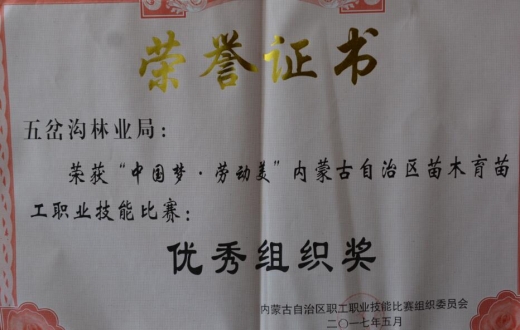 荣誉证书
五岔沟林业局：
荣获“中国梦·劳动美”内蒙古自治区苗木育苗
工职业技能比赛：
优秀组织奖
内蒙古自治区职工职业技能比赛组织委员会
二〇一七年五月